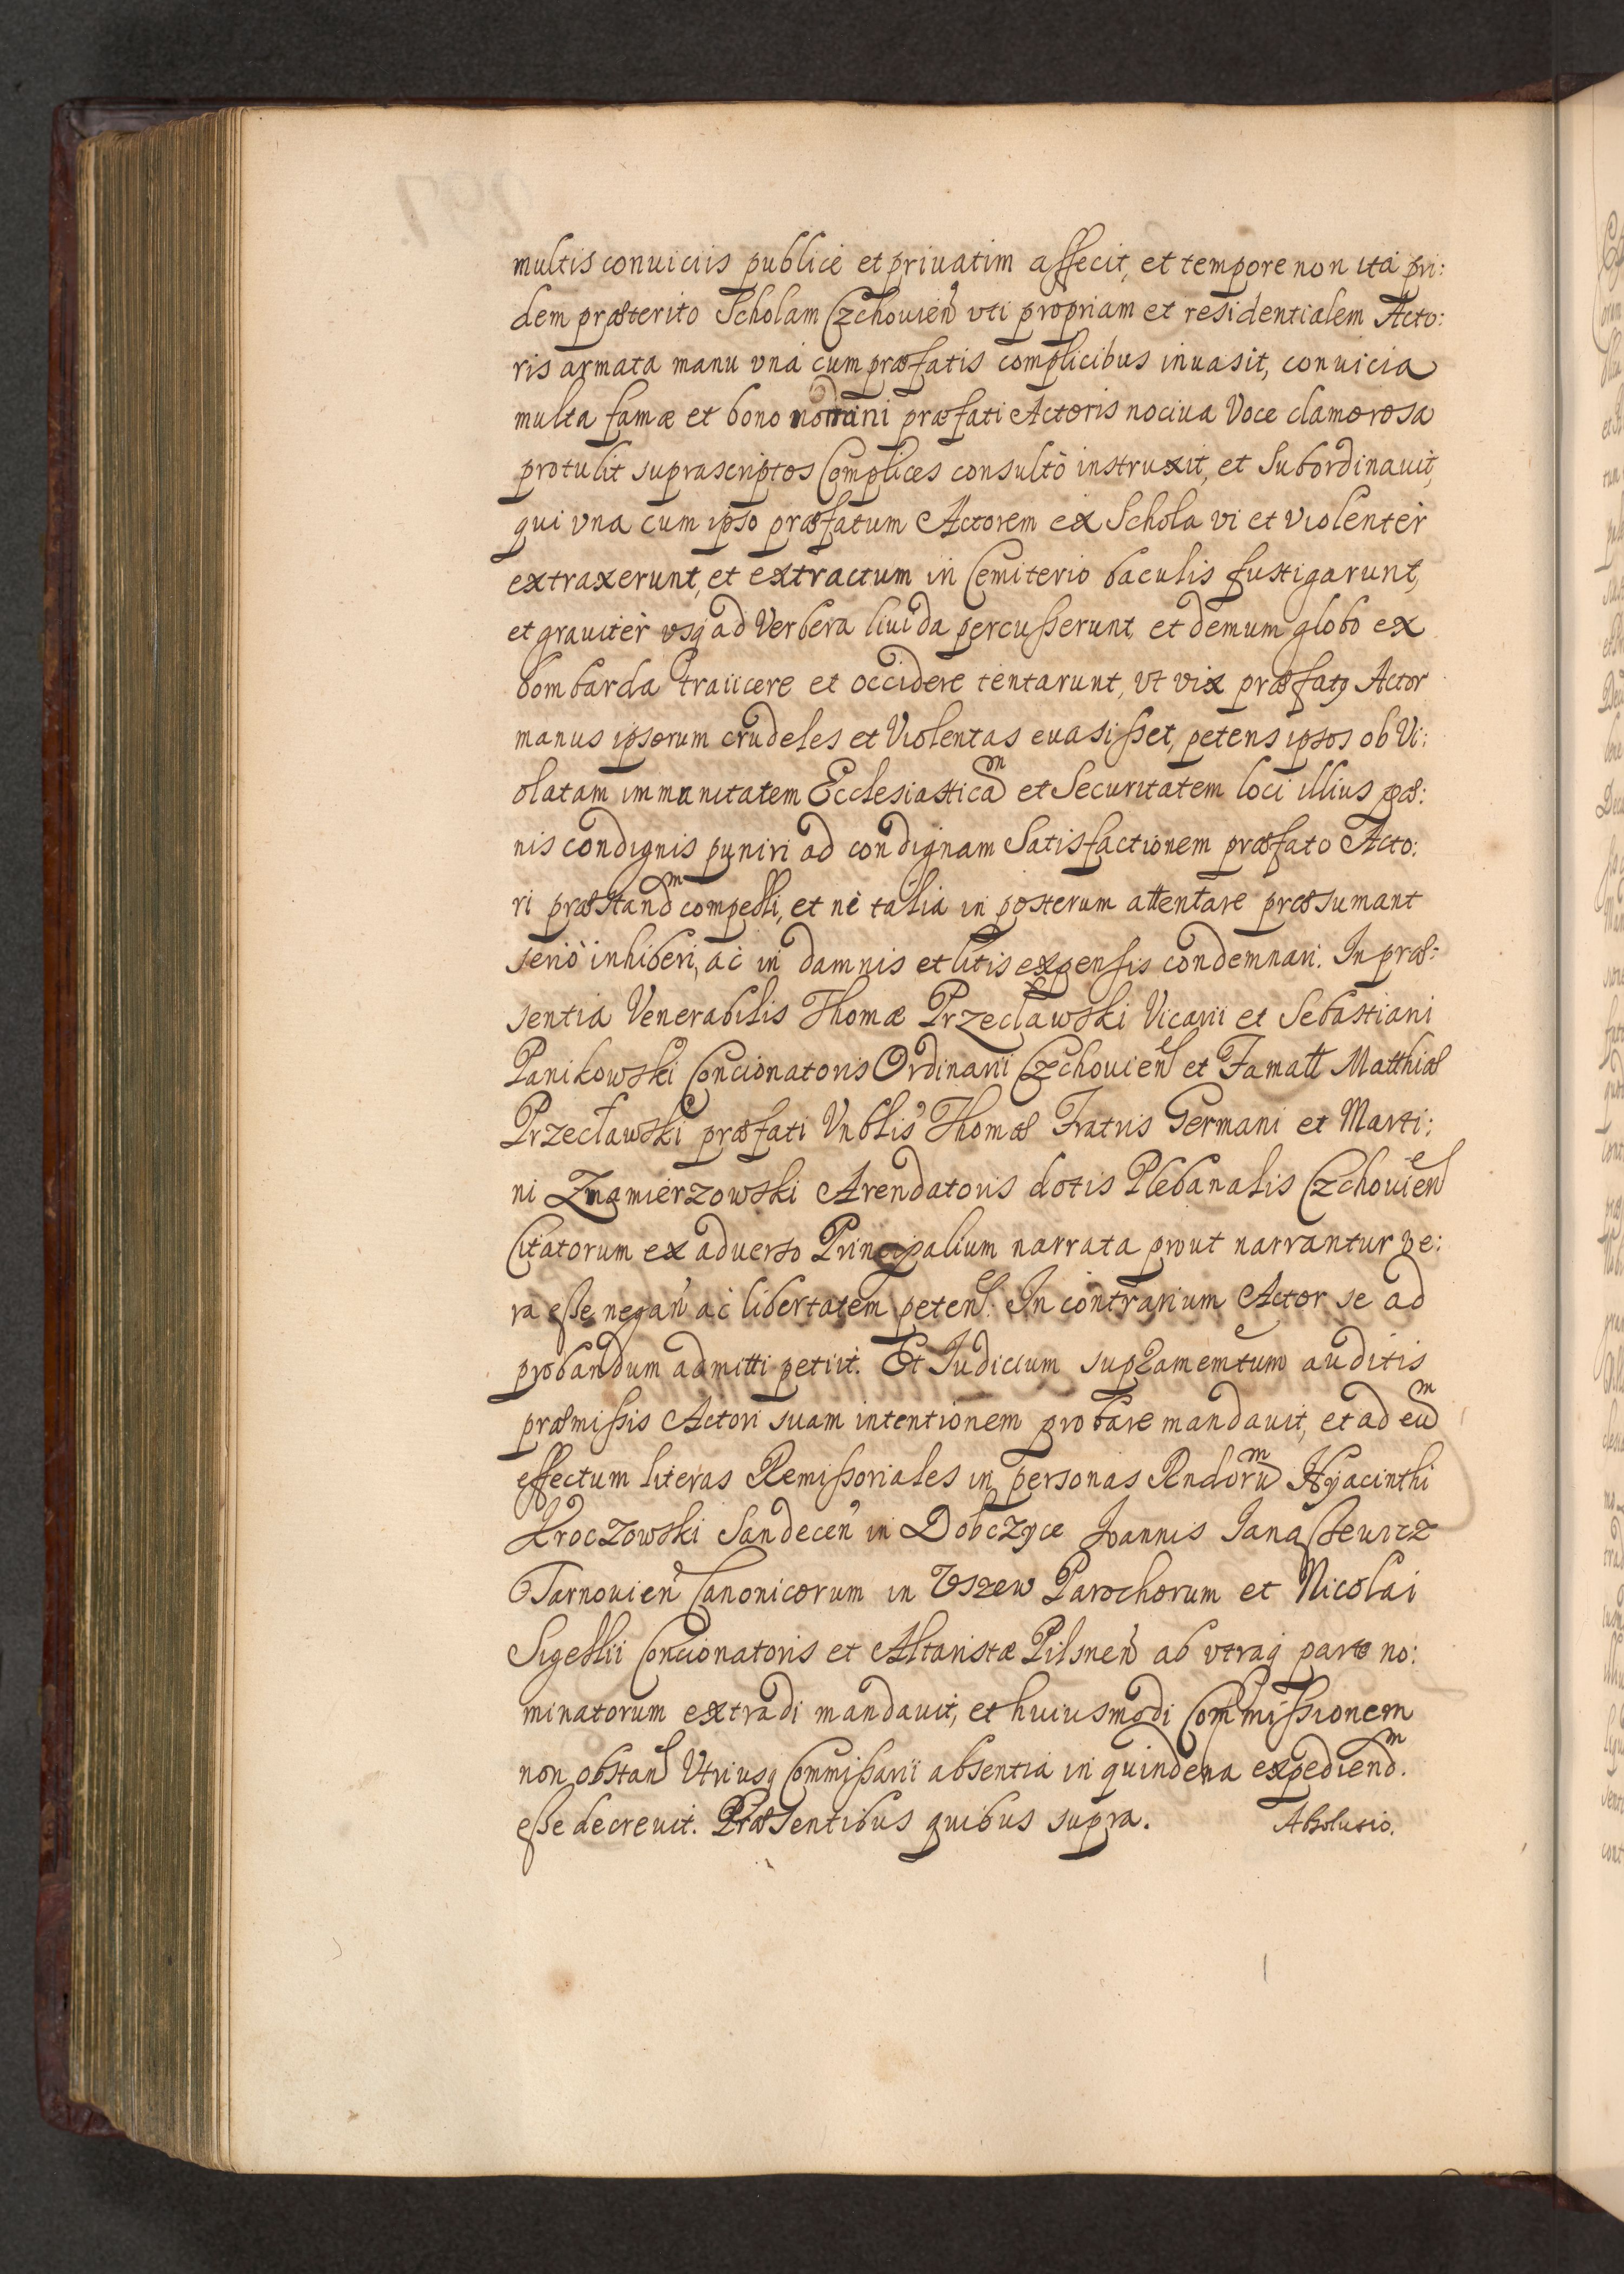 multis conuiciis publicè et priuatim affecit, et tempore non ita pri:
dem præterito Scholam Czchouień vti propriam et residentialem Acto:
ris armata manu vná cum præfatis complicibus inuasit, conuicia
multa famæ et bono nomini præfati Actoris nociua Voce clamorosa
protulit suprascriptos Complices consultò instruxit, et Subordinauit,
qui vna cum ipso præfatum Actorem ex Schola vi et violentèr
extraxerunt, et extractum in Cemiterio baculis fustigarunt,
et grauitèr vsq ad Verbera liuida percusserunt, et demum globo ex
bombarda traiicere et occidere tentarunt, vt vix præfatq Actor
manus ipsorum crudeles et Violentas euasisset, petens ipsos ob Vi:
olatam immunitatem Ecclesiasticam et Securitatem loci illius pæ:
nis condignis puniri ad condignam Satisfactionem præfato Acto:
ri præstandm compelli, et nè talia in posterum attentare præsumant
seriò inhiberi, ac in damnis et litis expensis condemnari. In præ:
sentia Venerabilis Thomæ Przecławski Vicarii et Sebastiani
Panikowski Concionatoris Ordinarii Czchouień et Famatt Matthiæ
Przecławski præfati Vnblis Thomæ Fratris Germani et Marti:
ni Znamierzowski Arendatoris dotis Plebanalis Czchouień
Citatorum ex aduerso Principalium narrata prout narrantur ve:
ra esse negań ac libertatem peteń. In contrarium Actor se ad
probandum admitti petiit. Et Iudicium suplamemtum auditis
præmissis Actori suam intentionem probare mandauit, et ad eum
effectum literas Remissoriales in personas Rndorum Hyacinthi
Kroczowski Sandeceń in Dobczyce Ioannis Ianassewicz
Tarnouień Canonicorum in Vszew Parochorum et Nicolai
Sigellii Concionatoris et Altaristæ Pilsneń ab vtraq parte no:
minatorum extradi mandauit, et huiusmodi Commissionem
non obstań Vtriusq Commissarii absentia in quindena expediendm.
esse decreuit. Præsentibus quibus supra. Absolutio.